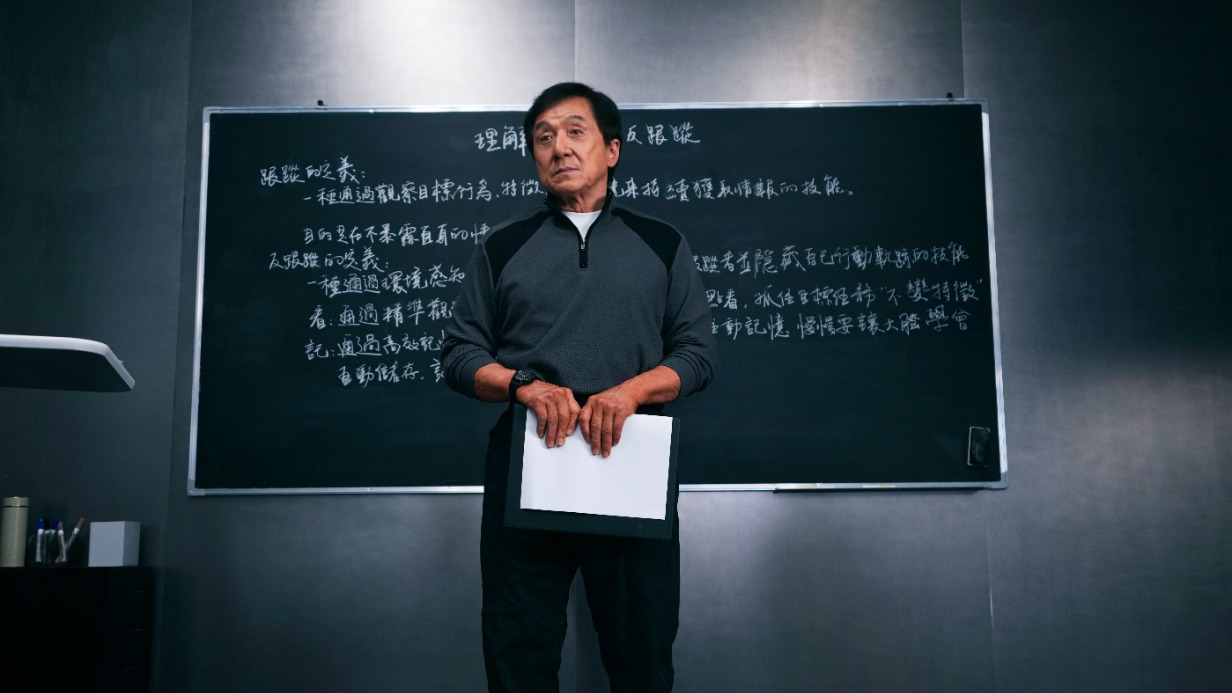 理解 反跟蹤
跟蹤的定義:
一種通過觀察目標行為、特徵 來持續獲取情報的技能。
目的是在不暴露自身的情
反跟蹤的定義:
一種通過環境感知 跟蹤者並隱藏自己行動軌跡的技能
看:通過精準觀 點看,抓住目標任務"不變特徵"
記:通過高效記 主動記憶 慢慢要讓大腦學會
自動儲存。